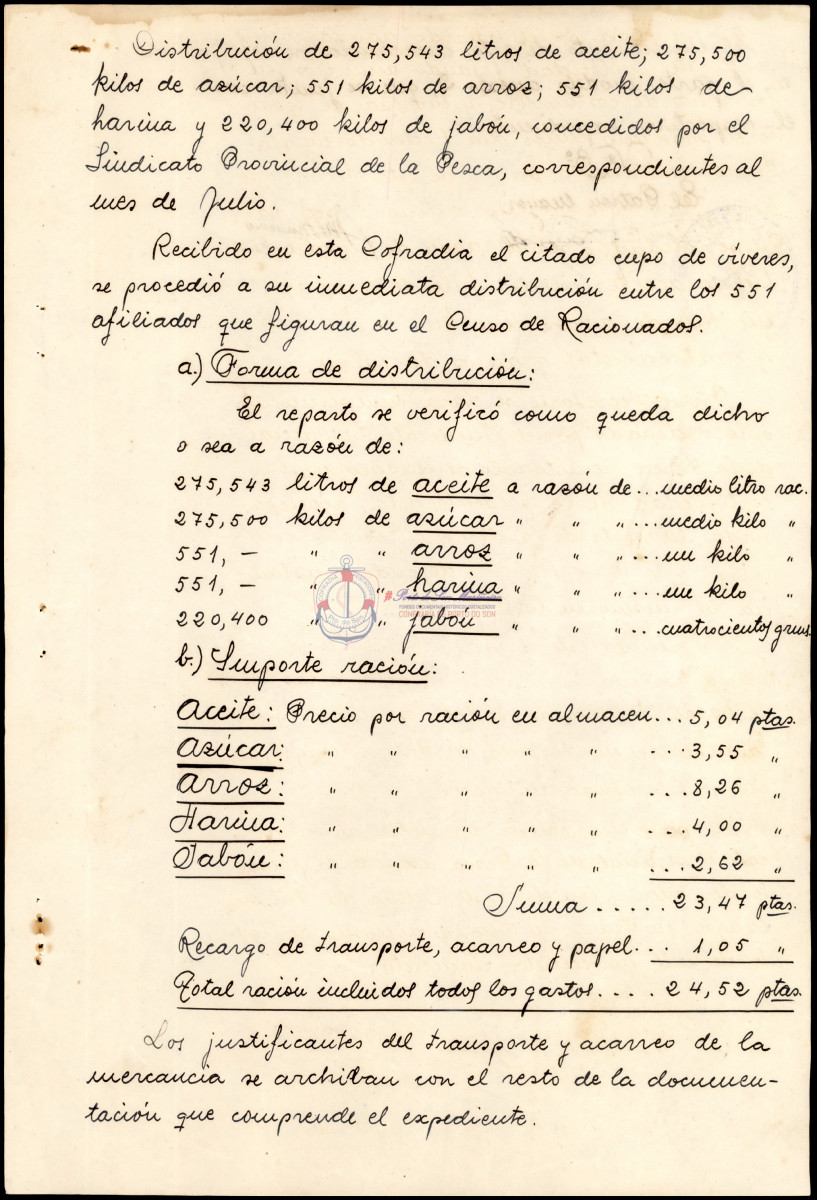 Distribución de 275,543 litros de aceite; 275,500
kilos de azúcar; 551 kilos de arroz; 551 kilos de
harina y 220,400 kilos de jabón, concedidos por el
Sindicato Provincial de la Pesca, correspondientes al
mes de Julio.
Recibido en esta Cofradia el citado cupo de víveres,
se procedió a su inmediata distribución entre los 551
afiliados que figuran en el Censo de Racionados.
a.) Forma de distribución:
El reparto se verificó como queda dicho
o sea a razón de:
275,543 litros de aceite a razón de ... medio litro rac.
275,500 kilos de azúcar " " " ... medio kilo "
551, — " " arroz " " " ... un kilo "
551, — " " harina " " " ... un kilo "
220,400 " " jabón " " " ... cuatrocientos grms.
b.) Importe ración:
Aceite: Precio por ración en almacen ... 5,04 ptas.
Azúcar: " " " " " ... 3,55 "
Arroz: " " " " " ... 8,26 "
Harina: " " " " " ... 4,00 "
Jabón: " " " " " ... 2,62 "
Suma ..... 23,47 ptas.
Recargo de transporte, acarreo y papel ... 1,05 "
Total ración incluidos todos los gastos .... 24,52 ptas.
Los justificantes del transporte y acarreo de la
mercancia se archiban con el resto de la documen-
tación que comprende el expediente.
CONFRARÍA DE PORTO DO SON